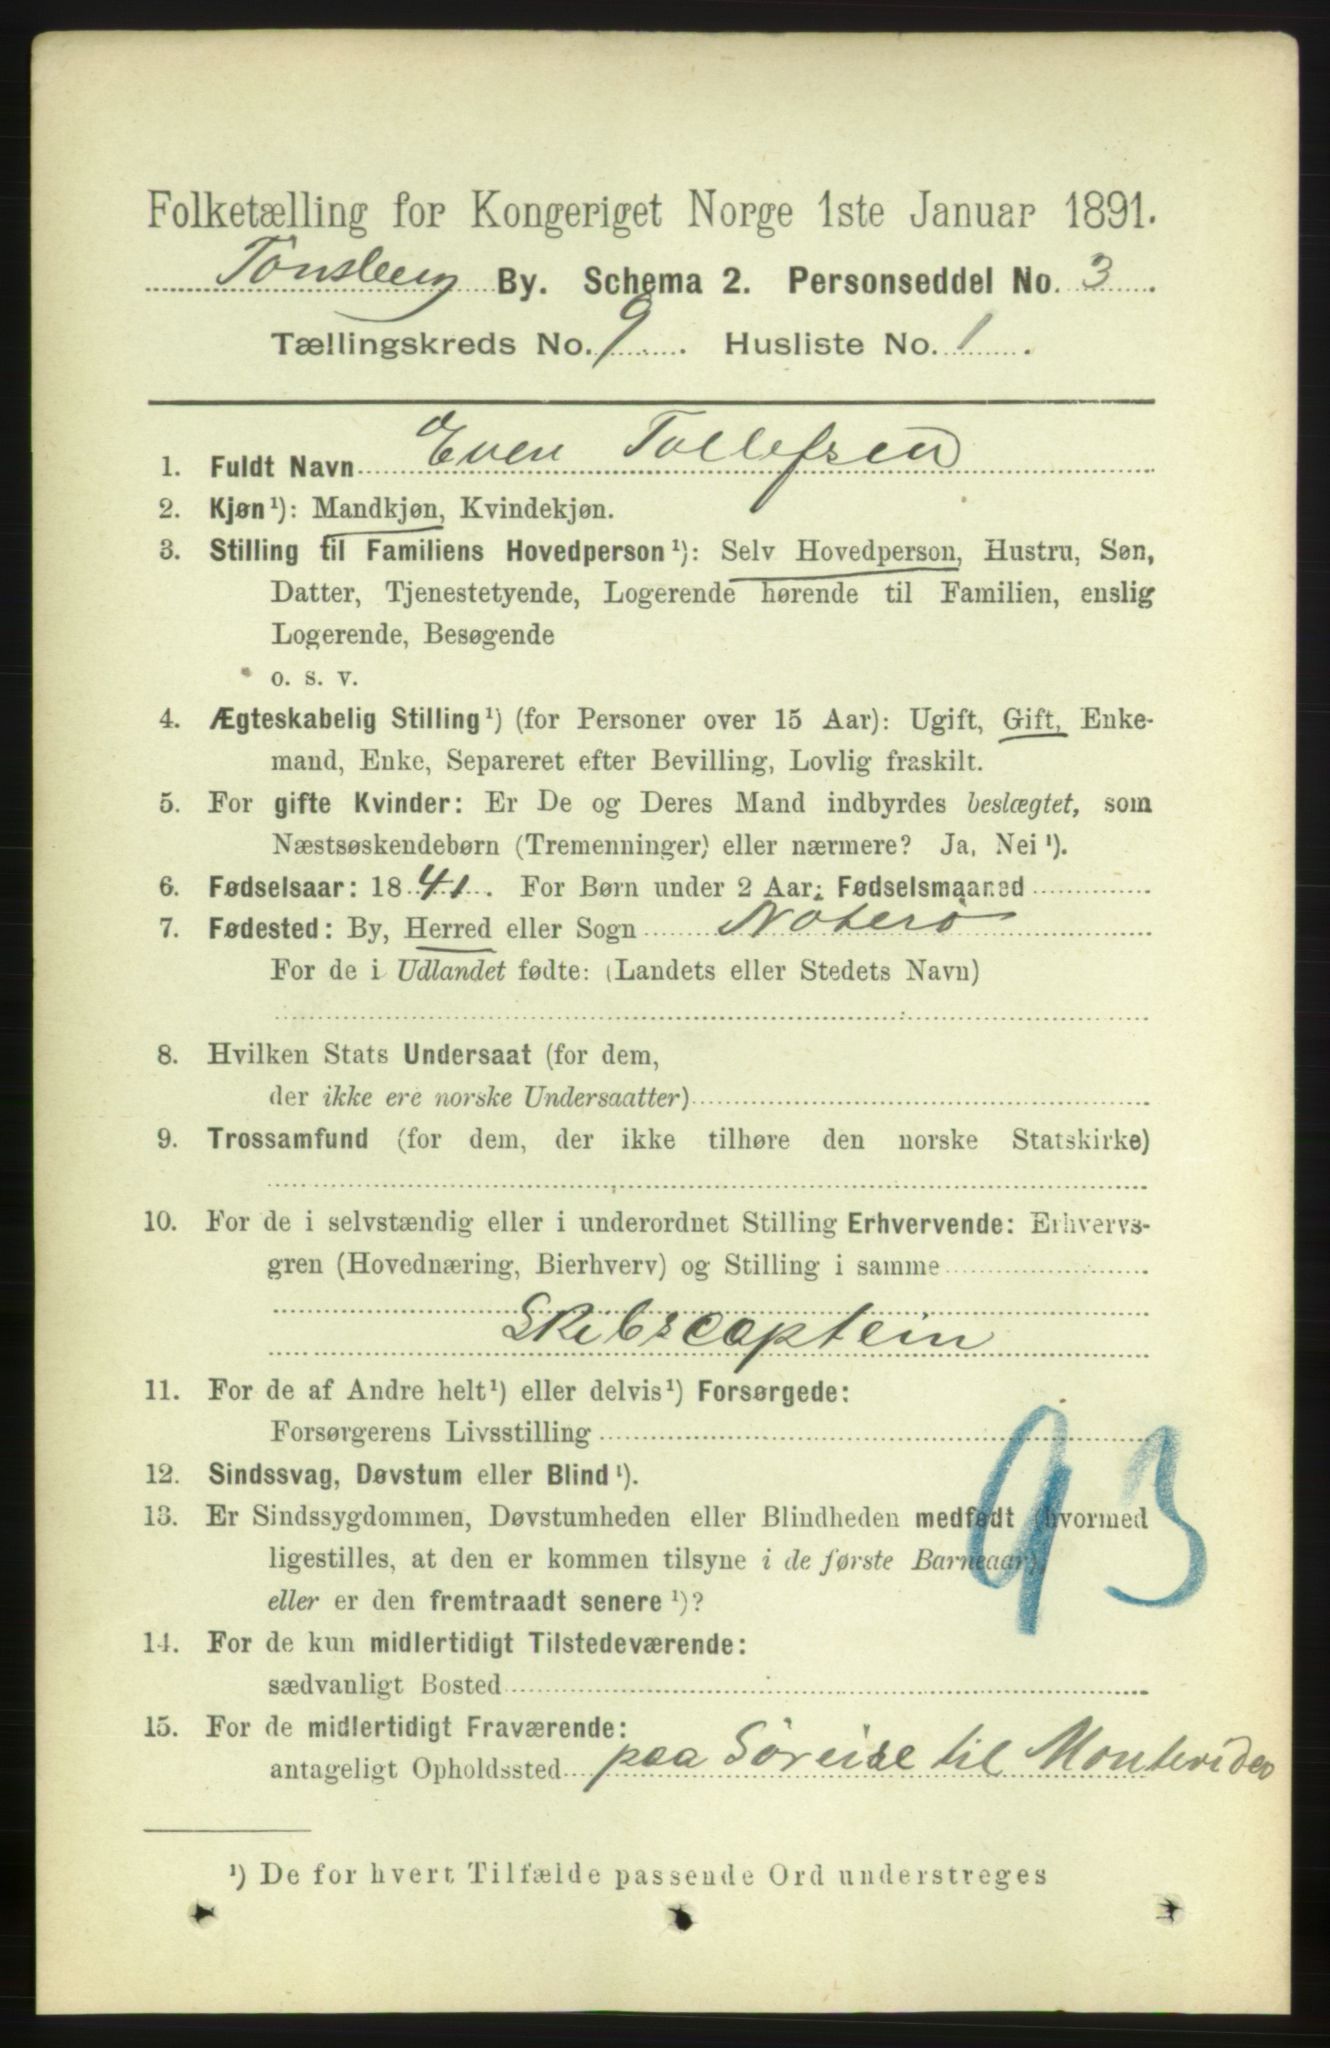 Folketælling for Kongeriget Norge 1ste Januar 1891.
Tønsberg By. Schema 2. Personseddel No. 3.
Tællingskreds No. 9. Husliste No. 1.
1. Fuldt Navn Even Tollefsen
2. Kjøn¹): Mandkjøn, Kvindekjøn.
3. Stilling til Familiens Hovedperson¹): Selv Hovedperson, Hustru, Søn,
Datter, Tjenestetyende, Logerende hørende til Familien, enslig
Logerende, Besøgende
o. s. v.
4. Ægteskabelig Stilling¹) (for Personer over 15 Aar): Ugift, Gift, Enke-
mand, Enke, Separeret efter Bevilling, Lovlig fraskilt.
5. For gifte Kvinder: Er De og Deres Mand indbyrdes beslægtet, som
Næstsøskendebørn (Tremenninger) eller nærmere? Ja, Nei¹).
6. Fødselsaar: 1841. For Børn under 2 Aar: Fødselsmaaned
7. Fødested: By, Herred eller Sogn Nøterø
For de i Udlandet fødte: (Landets eller Stedets Navn)
8. Hvilken Stats Undersaat (for dem,
der ikke ere norske Undersaatter)
9. Trossamfund (for dem, der ikke tilhøre den norske Statskirke)
10. For de i selvstændig eller i underordnet Stilling Erhvervende: Erhvervs-
gren (Hovednæring, Bierhverv) og Stilling i samme
Skibscaptein
11. For de af Andre helt¹) eller delvis¹) Forsørgede:
Forsørgerens Livsstilling
93
12. Sindssvag, Døvstum eller Blind¹).
13. Er Sindssygdommen, Døvstumheden eller Blindheden medfødt (hvormed
ligestilles, at den er kommen tilsyne i de første Barneaar),
eller er den fremtraadt senere¹)?
14. For de kun midlertidigt Tilstedeværende:
sædvanligt Bosted
15. For de midlertidigt Fraværende:
antageligt Opholdssted paa Söreise til Montevideo
¹) De for hvert Tilfælde passende Ord understreges